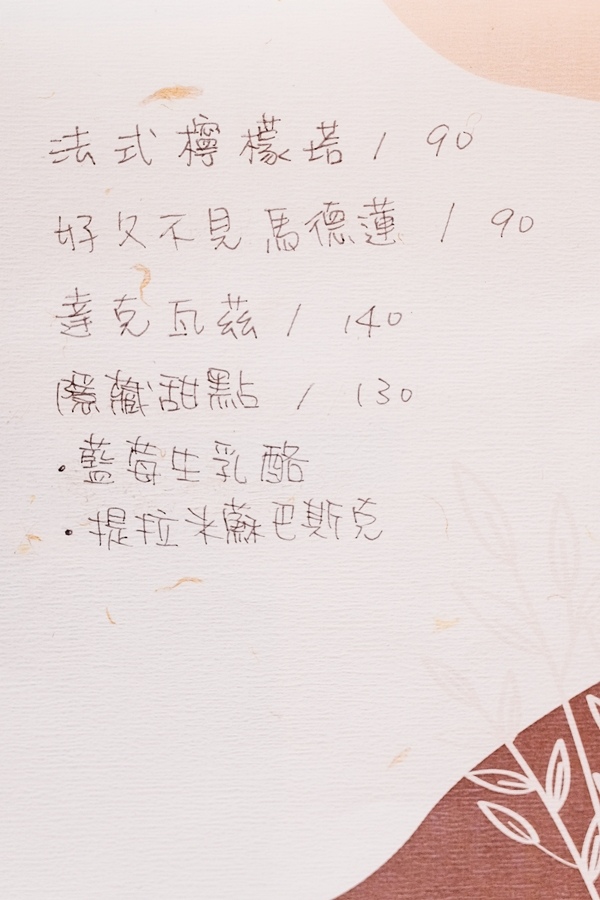 法式檸檬塔 / 90
好久不見馬德蓮 / 90
達克瓦茲 / 140
隱藏甜點 / 130
·藍莓生乳酪
·提拉米蘇巴斯克